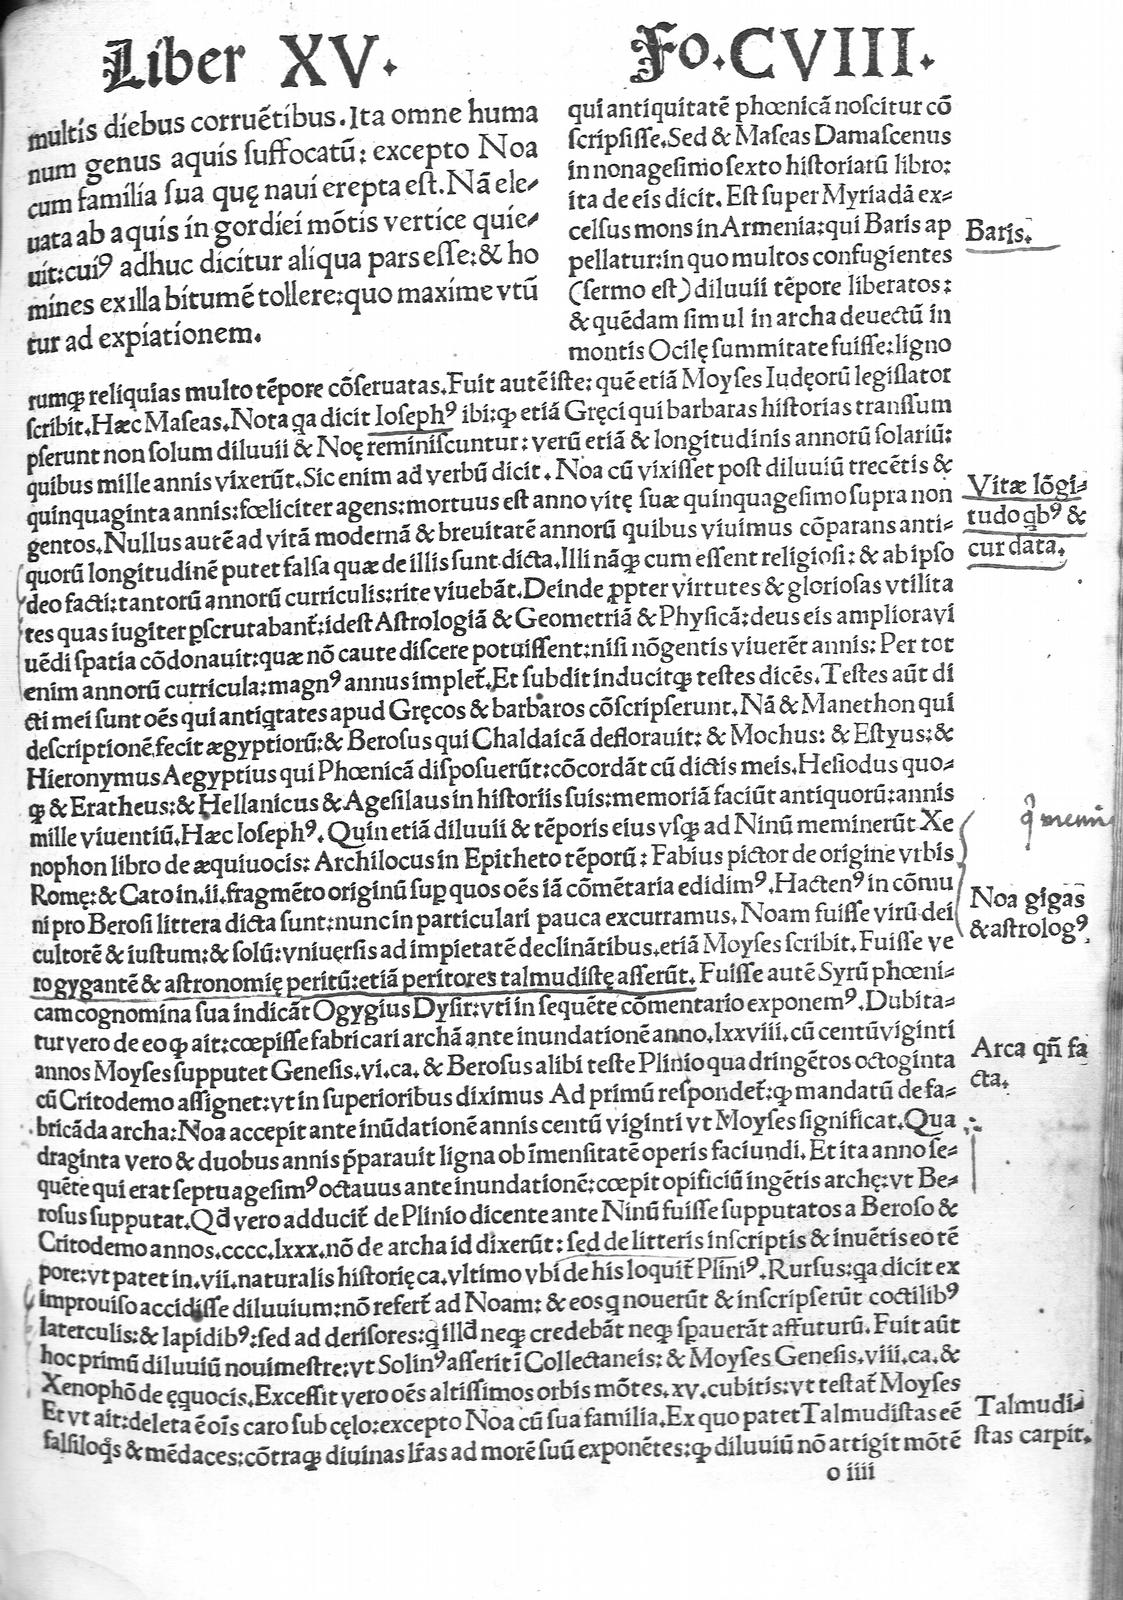 Liber XV.
Fo. CVIII.
multis diebus corruẽtibus. Ita omne huma
num genus aquis ſuffocatũ: excepto Noa
cum familia ſua quę naui erepta eſt. Nã ele⸗
uata ab aquis in gordiei mõtis vertice quie⸗
uit: cuiꝰ adhuc dicitur aliqua pars eſſe: & ho
mines ex illa bitumẽ tollere: quo maxime vtũ
tur ad expiationem.
qui antiquitatẽ phœnicã noſcitur cõ
ſcripſiſſe. Sed & Maſeas Damaſcenus
in nonageſimo ſexto hiſtoriarũ libro:
ita de eis dicit. Eſt ſuper Myriadã ex⸗
celſus mons in Armenia: qui Baris ap
pellatur: in quo multos confugientes
(ſermo eſt) diluuii tẽpore liberatos:
& quẽdam ſimul in archa deuectũ in
montis Ocilę ſummitate fuiſſe: ligno
Baris.
rumꝙ reliquias multo tẽpore cõſeruatas. Fuit autẽ iſte: quẽ etiã Moyſes Iudęorũ legiſlator
ſcribit. Hæc Maſeas. Nota qa dicit Ioſephꝰ ibi: ꝙ etiã Gręci qui barbaras hiſtorias tranſſum
pſerunt non ſolum diluuii & Noę reminiſcuntur: verũ etiã & longitudinis annorũ ſolariũ:
quibus mille annis vixerũt. Sic enim ad verbũ dicit. Noa cũ vixiſſet poſt diluuiũ trecẽtis &
quinquaginta annis: fœliciter agens: mortuus eſt anno vitę ſuæ quinquageſimo ſupra non
gentos. Nullus autẽ ad vitã modernã & breuitatẽ annorũ quibus viuimus cõparans anti⸗
quorũ longitudinẽ putet falſa quæ de illis ſunt dicta. Illi nãꝙ cum eſſent religioſi: & ab ipſo
deo facti: tantorũ annorũ curriculis: rite viuebãt. Deinde ꝓpter virtutes & glorioſas vtilita
tes quas iugiter pſcrutabant̃: ideſt Aſtrologiã & Geometriã & Phyſicã: deus eis ampliora vi
uẽdi ſpatia cõdonauit: quæ nõ caute diſcere potuiſſent: niſi nõgentis viuerẽt annis: Per tot
enim annorũ curricula: magnꝰ annus implet̃. Et ſubdit inducitꝙ teſtes dicẽs. Teſtes aũt di
cti mei ſunt oẽs qui antiqtates apud Gręcos & barbaros cõſcripſerunt. Nã & Manethon qui
deſcriptionẽ fecit ægyptiorũ: & Beroſus qui Chaldaicã deflorauit: & Mochus: & Eſtyus: &
Hieronymus Aegyptius qui Phœnicã diſpoſuerũt: cõcordãt cũ dictis meis. Heſiodus quo⸗
ꝙ & Eratheus: & Hellanicus & Ageſilaus in hiſtoriis ſuis: memoriã faciũt antiquorũ: annis
mille viuentiũ. Hæc Ioſephꝰ. Quin etiã diluuii & tẽporis eius vſꝙ ad Ninũ meminerũt Xe
nophon libro de æquiuocis: Archilocus in Epitheto tẽporũ: Fabius pictor de origine vrbis
Romę: & Cato in .ii. fragmẽto originũ ſup quos oẽs iã cõmẽtaria edidimꝰ. Hactenꝰ in cõmu
ni pro Beroſi littera dicta ſunt: nunc in particulari pauca excurramus. Noam fuiſſe virũ dei
cultorẽ & iuſtum: & ſolũ: vniuerſis ad impietatẽ declinãtibus. etiã Moyſes ſcribit. Fuiſſe ve
ro gygantẽ & aſtronomię peritũ: etiã peritores talmudiſtę aſſerũt. Fuiſſe autẽ Syrũ phœni⸗
cam cognomina ſua indicãt Ogygius Dyſir: vti in ſequẽte cõmentario exponemꝰ. Dubita⸗
tur vero de eo ꝙ ait: cœpiſſe fabricari archã ante inundationẽ anno .lxxviii. cũ centũ viginti
annos Moyſes ſupputet Geneſis .vi. ca. & Beroſus alibi teſte Plinio quadringẽtos octoginta
cũ Critodemo aſſignet: vt in ſuperioribus diximus Ad primũ reſpondet̃: ꝙ mandatũ de fa⸗
bricãda archa: Noa accepit ante inũdationẽ annis centũ viginti vt Moyſes ſignificat. Qua
draginta vero & duobus annis p̃parauit ligna ob imenſitatẽ operis faciundi. Et ita anno ſe⸗
quẽte qui erat ſeptuageſimꝰ octauus ante inundationẽ: cœpit opificiũ ingẽtis archę: vt Be⸗
roſus ſupputat. Qđ vero adducit̃ de Plinio dicente ante Ninũ fuiſſe ſupputatos a Beroſo &
Critodemo annos .cccc.lxxx. nõ de archa id dixerũt: ſed de litteris inſcriptis & inuẽtis eo tẽ
pore: vt patet in .vii. naturalis hiſtorię ca. vltimo vbi de his loquit̃ Pliniꝰ. Rurſus: qa dicit ex
improuiſo accidiſſe diluuium: nõ refert̃ ad Noam: & eos q nouerũt & inſcripſerũt coctilibꝰ
laterculis: & lapidibꝰ: ſed ad deriſores: q illđ neꝙ credebãt neꝙ ſpauerãt affuturũ. Fuit aũt
hoc primũ diluuiũ nouimeſtre: vt Solinꝰ aſſerit ĩ Collectaneis: & Moyſes Geneſis .viii. ca. &
Xenophõ de ęquocis. Exceſſit vero oẽs altiſſimos orbis mõtes .xv. cubitis: vt teſtat̃ Moyſes
Et vt ait: deleta ẽ oĩs caro ſub cęlo: excepto Noa cũ ſua familia. Ex quo patet Talmudiſtas eẽ
falſiloq̃s & mẽdaces: cõtraꝙ diuinas lr̃as ad morẽ ſuũ exponẽtes: ꝙ diluuiũ nõ attigit mõtẽ
o iiii
Vitæ lõgi⸗
tudo qbꝰ &
cur data.
Noa gigas
& aſtrologꝰ.
Arca qñ fa
cta.
Talmudi⸗
ſtas carpit.